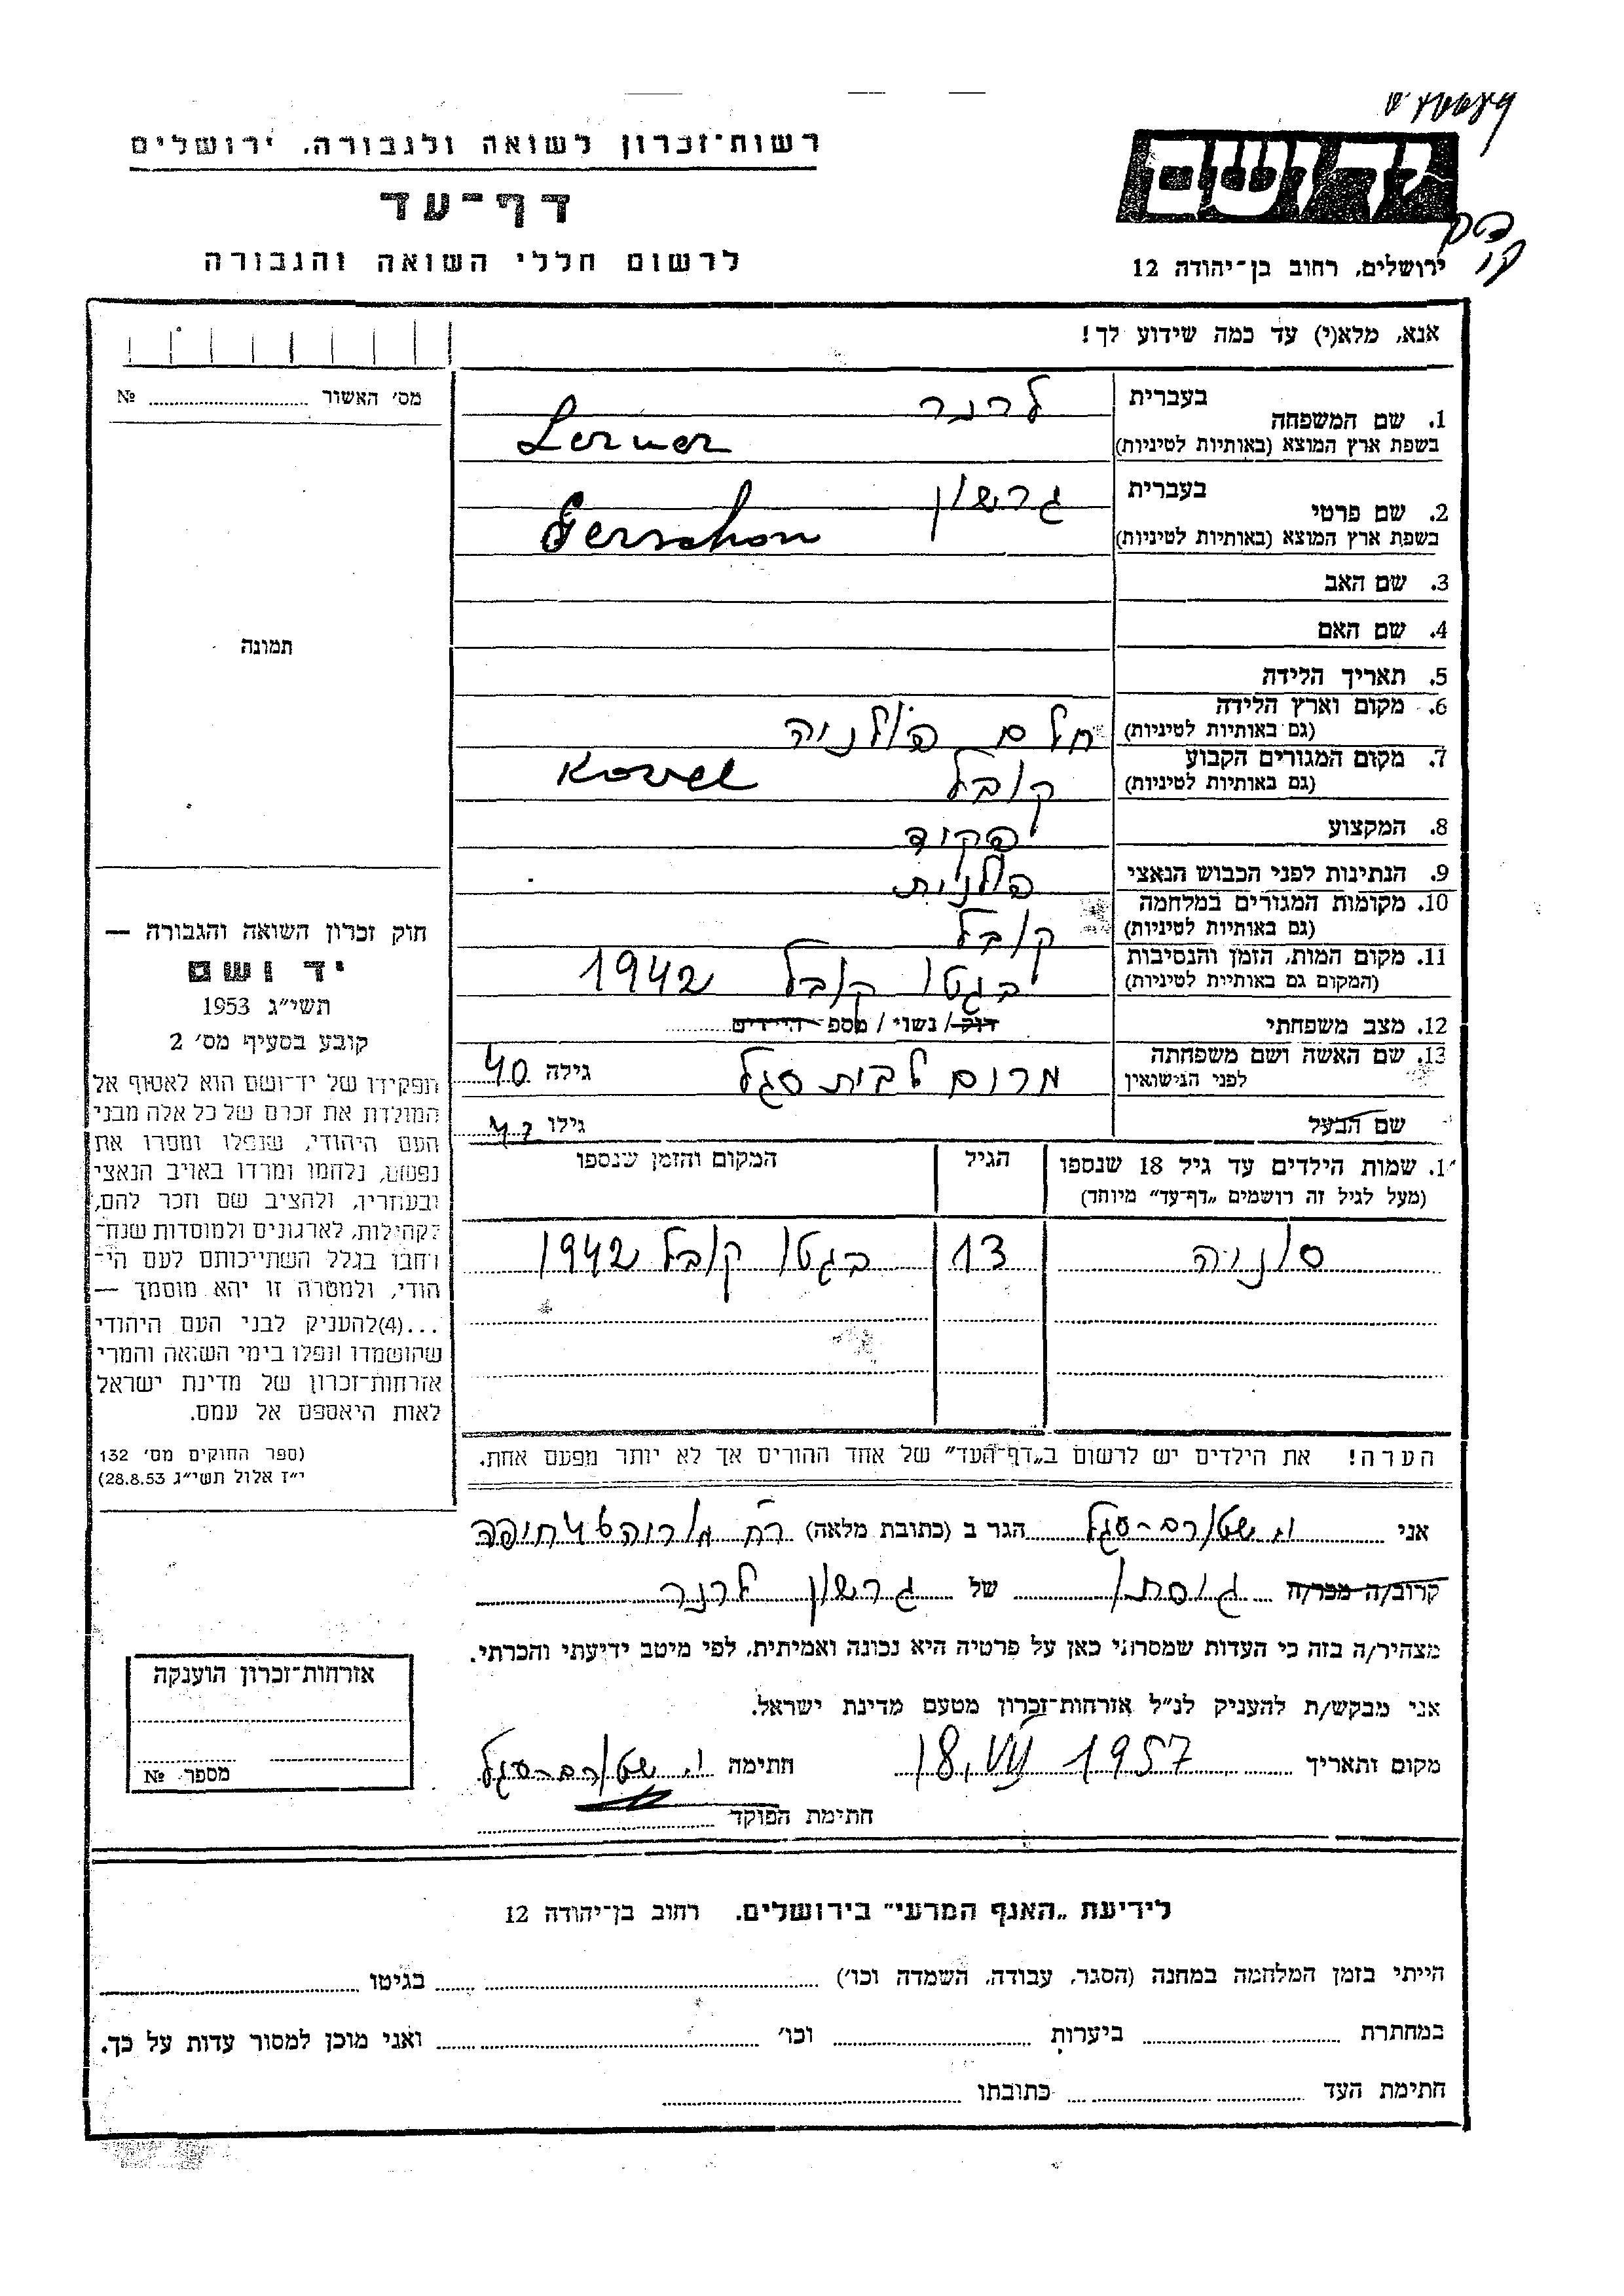 רשות־זכרון לשואה ולגבורה, ירושלים
דף־עד
לרשום חללי השואה והגבורה
ידושם
ירושלים, רחוב בן־יהודה 12
אנא, מלא(י) עד כמה שידוע לך!
מס׳ האשור № 
תמונה
1. שם המשפחה בעברית לרנר
בשפת ארץ המוצא (באותיות לטיניות) Lerner
2. שם פרטי בעברית גרשון
בשפת ארץ המוצא (באותיות לטיניות) Gerschon
3. שם האב
4. שם האם
5. תאריך הלידה
6. מקום וארץ הלידה (גם באותיות לטיניות) חלם פולניה
7. מקום המגורים הקבוע (גם באותיות לטיניות) קובל Kovel
8. המקצוע פקיד
9. הנתינות לפני הכבוש הנאצי פולנית
10. מקומות המגורים במלחמה (גם באותיות לטיניות) קובל
11. מקום המות, הזמן והנסיבות (המקום גם באותיות לטיניות) בגטו קובל 1942
12. מצב משפחתי רוק/ נשוי / מספ־ הילדים
13. שם האשה ושם משפחתה לפני הנישואין מרום לבית סגל גילה 40
שם הבעל גילו 47
1. שמות הילדים עד גיל 18 שנספו הגיל המקום והזמן שנספו
(מעל לגיל זה רושמים „דף־עד” מיוחד)
סוניה 13 בגטו קובל 1942
הערה! את הילדים יש לרשום ב„דף־העד” של אחד ההורים אך לא יותר מפעם אחת.
חוק זכרון השואה והגבורה —
יד ושם
תשי״ג 1953
קובע בסעיף מס׳ 2
תפקידו של יד־ושם הוא לאסוף אל
המולדת את זכרם של כל אלה מבני
העם היהודי, שנפלו ומסרו את
נפשם, נלחמו ומרדו באויב הנאצי
ובעוזריו, ולהציב שם וזכר להם,
לקהילות, לארגונים ולמוסדות שנח־
רחבו בגלל השתייכותם לעם הי־
הודי, ולמטרה זו יהא מוסמך —
...(4)להעניק לבני העם היהודי
שהושמדו ונפלו בימי השואה והמרי
אזרחות־זכרון של מדינת ישראל
לאות היאספם אל עמם.
(ספר החוקים מס׳ 132
י״ז אלול תשי״ג 28.8.53)
אני שטורם־סגל הגר ב (כתובת מלאה) רח חיפה
קרוב/ה מכר/ה גיסתו של גרשון לרנר
מצהיר/ה בזה כי העדות שמסרתי כאן על פרטיה היא נכונה ואמיתית, לפי מיטב ידיעתי והכרתי.
אני מבקש/ת להעניק לנ״ל אזרחות־זכרון מטעם מדינת ישראל.
מקום ותאריך 18. VII 1957 חתימה שטורם־סגל
חתימת הפוקד
אזרחות־זכרון הוענקה
מספר №
לידיעת „האגף המדעי” בירושלים, רחוב בן־יהודה 12
הייתי בזמן המלחמה במחנה (הסגר, עבודה, השמדה וכו׳) בגיטו
במחתרת ביערות וכו׳ ואני מוכן למסור עדות על כך.
חתימת העד כתובתו